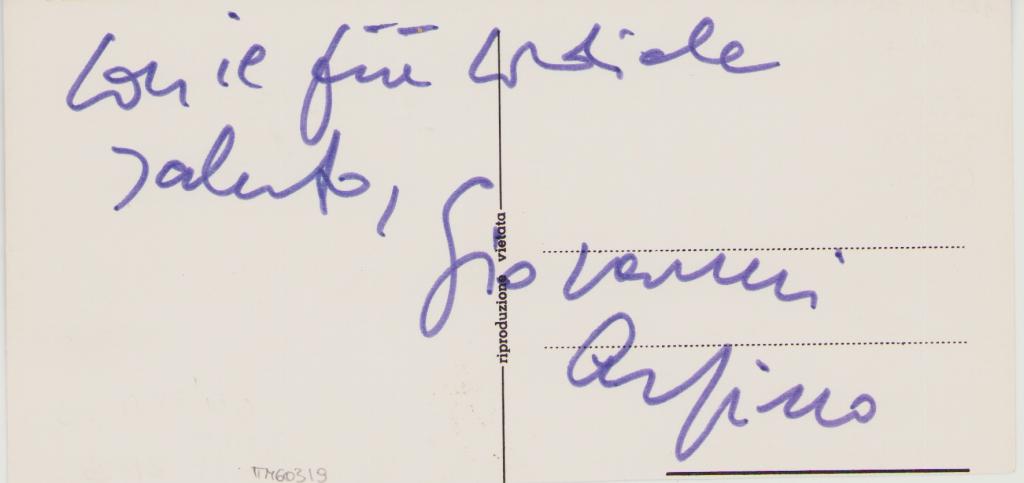 con il più cordiale
saluto,
Giovanni
Arpino
riproduzione vietata
TM60319